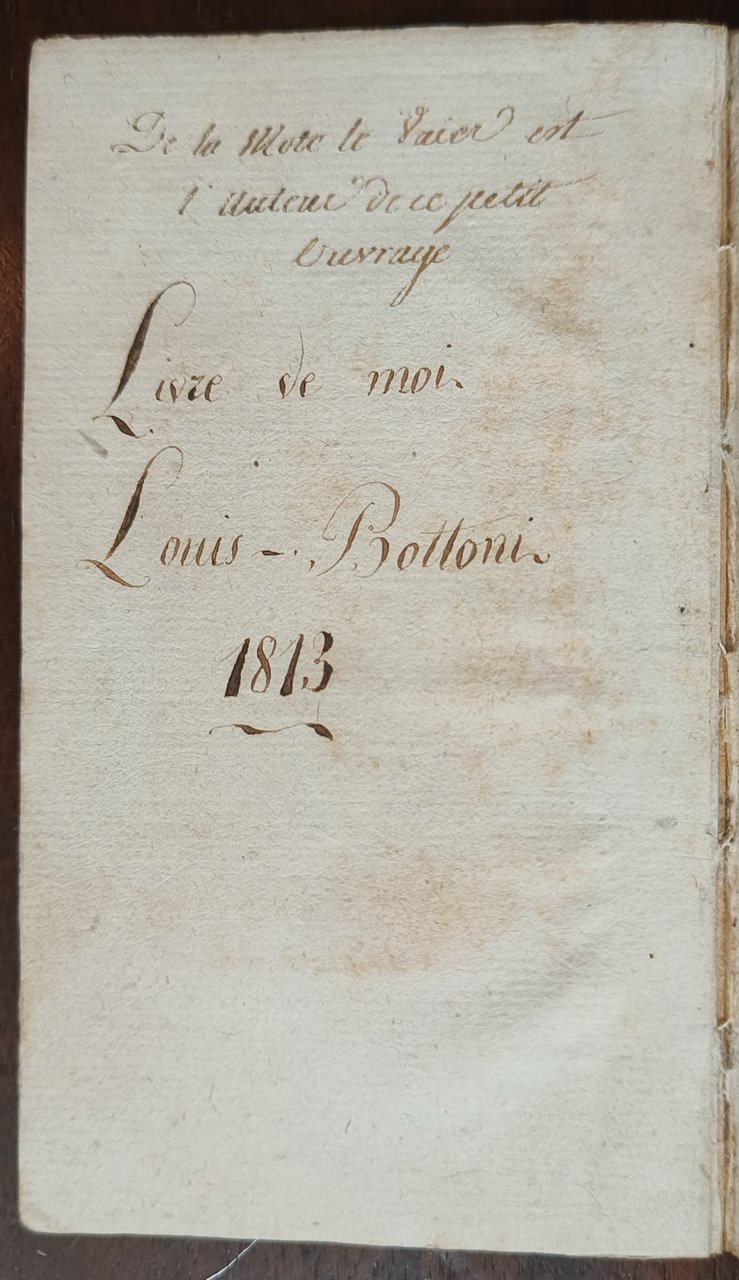 De la Mote le Vaier est
l'auteur de ce petit
Ouvrage
Livre de moi
Louis - Bottoni
1813